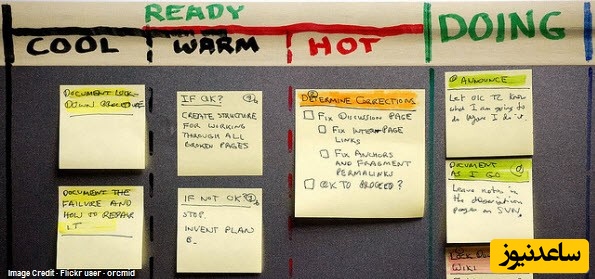 READY
COOL
WARM
HOT
DOING
DOCUMENT LOCK-
DOWN PROCEDURE
DOCUMENT THE
FAILURE AND
HOW TO REPAIR
IT
IF OK?
CREATE STRUCTURE
FOR WORKING
THROUGH ALL
BROKEN PAGES
IF NOT OK?
STOP.
INVENT PLAN
B.
DETERMINE CORRECTIONS
FIX DISCUSSION PAGE
FIX INTER-PAGE
LINKS
FIX ANCHORS
AND FRAGMENT
PERMALINKS
OK TO PROCEED?
ANNOUNCE
Let OIC TC know
what I am going to
do before I do it.
DOCUMENT
AS I GO
Leave notes in
the discussion
pages on SVN
WIKI
ساعدنیوز
Image Credit - Flickr user - orcmid